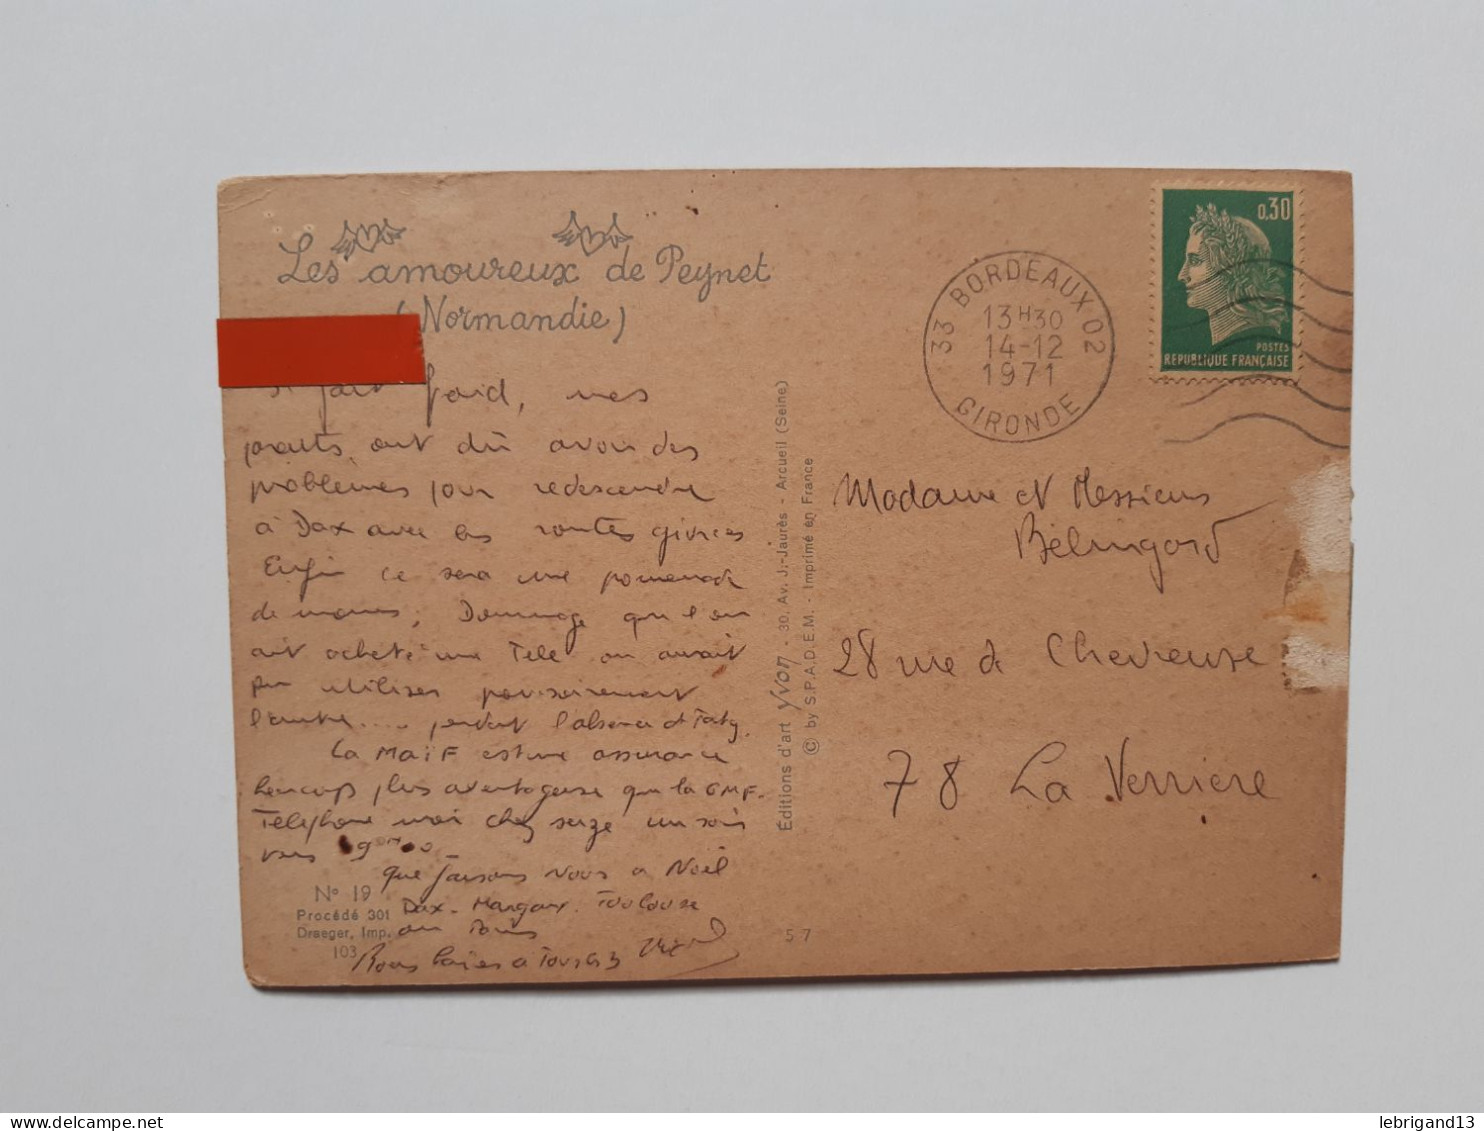 Les amoureux de Peynet
(Normandie)
fait froid, nes
parents ont dû avoir des
problèmes pour redescendre
à Dax avec les routes givrées
Enfin ce sera une promenade
de moins, Dommage que l'on
ait acheté une Télé on aurait
pu utiliser provisoirement
l'autre.... pendant l'absence de Taty.
La MAIF est une assurance
beaucoup plus avantageuse que la GMF.
Telephone moi chez serge un soir
vers 19H00
que faisons nous a Noël
Dax - Margaux. Toulouse
ou Paris
Bons baisers a Tous les 3
N° 19
Procédé 301
Draeger, Imp.
103
57
Éditions d'art yvon - 30, Av. J.-Jaurès - Arcueil (Seine)
© by S.P.A.D.E.M. - Imprimé en France
33 BORDEAUX 02
13H30
14-12
1971
GIRONDE
0,30
POSTES
REPUBLIQUE FRANÇAISE
Madame et Messieurs
Bélingard
28 rue de Chevreuse
78 La Verriere
lebrigand13